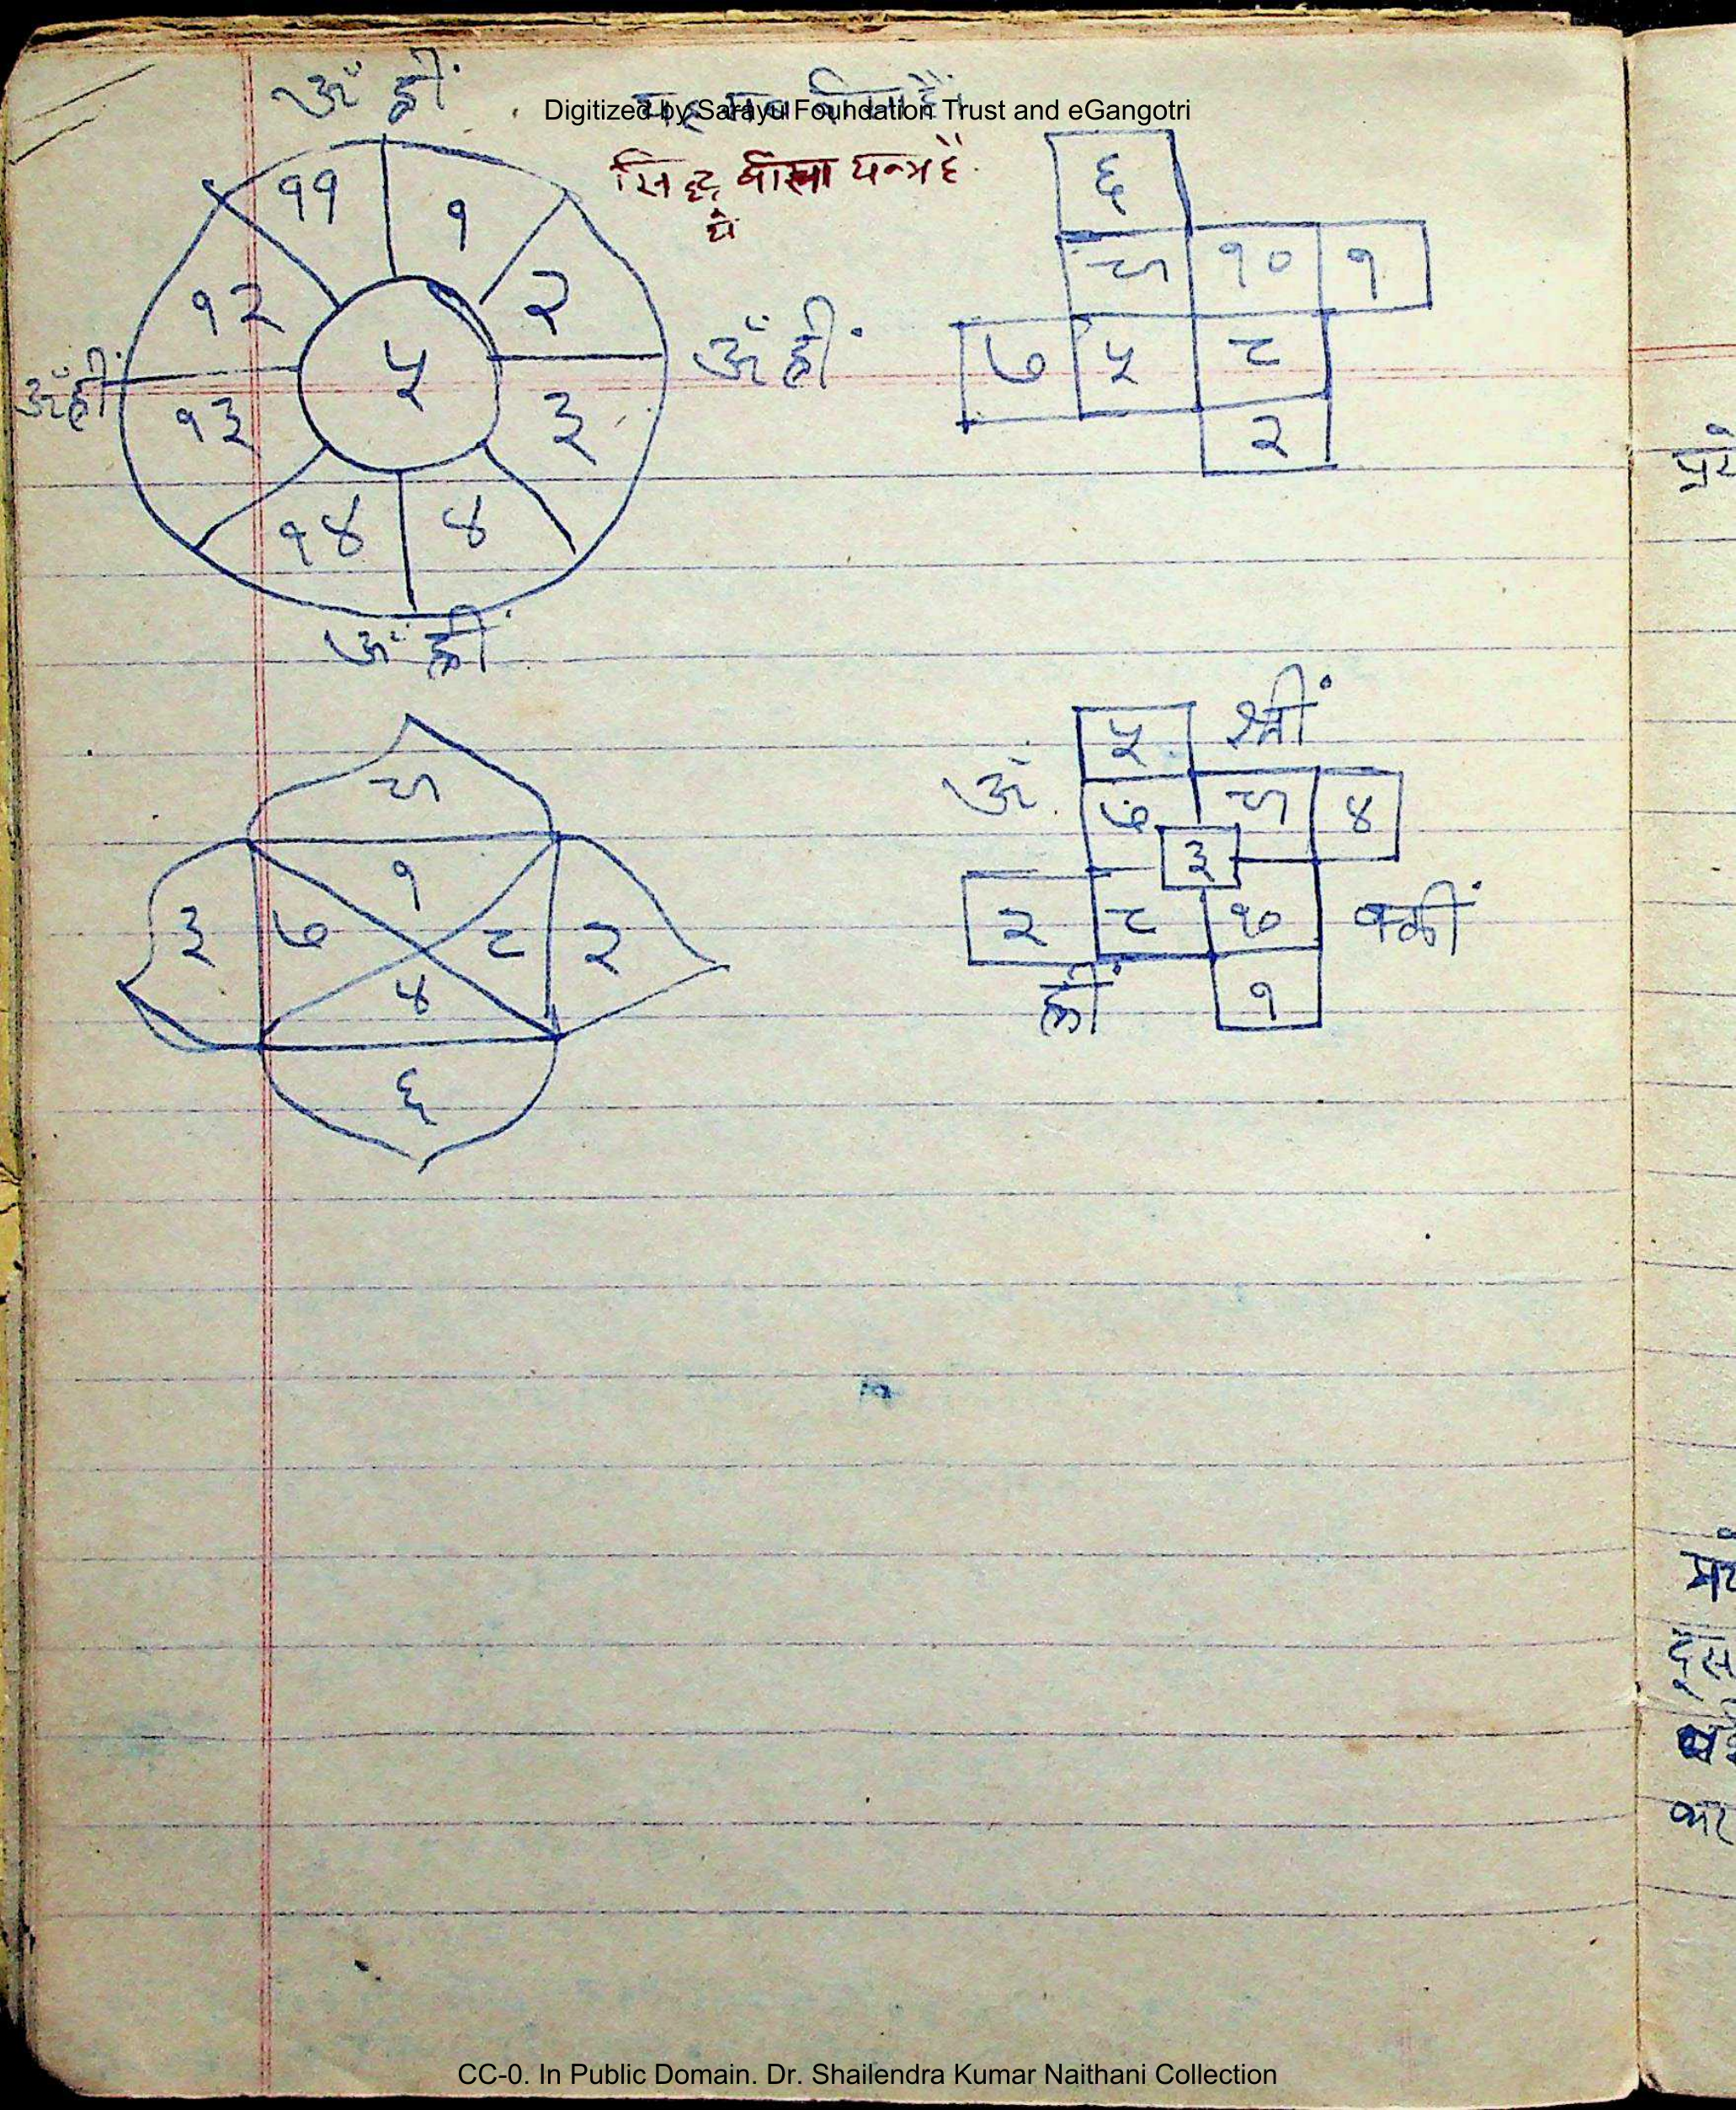 ॐ ह्रीं
Digitized by Sarayu Foundation Trust and eGangotri
सिद्ध बीसा यन्त्र है
ये
११ १
१२ २
ॐ ह्रीं ५ ॐ ह्रीं
१३ ३
१४ ४
ॐ ह्रीं
६
९ १० १
७ ५ ८
२
९
१
३ ७ ८ २
४
६
५ श्रीं
ॐ ७ ९ ४
३
२ ८ १० क्लीं
ह्रीं १
CC-0. In Public Domain. Dr. Shailendra Kumar Naithani Collection